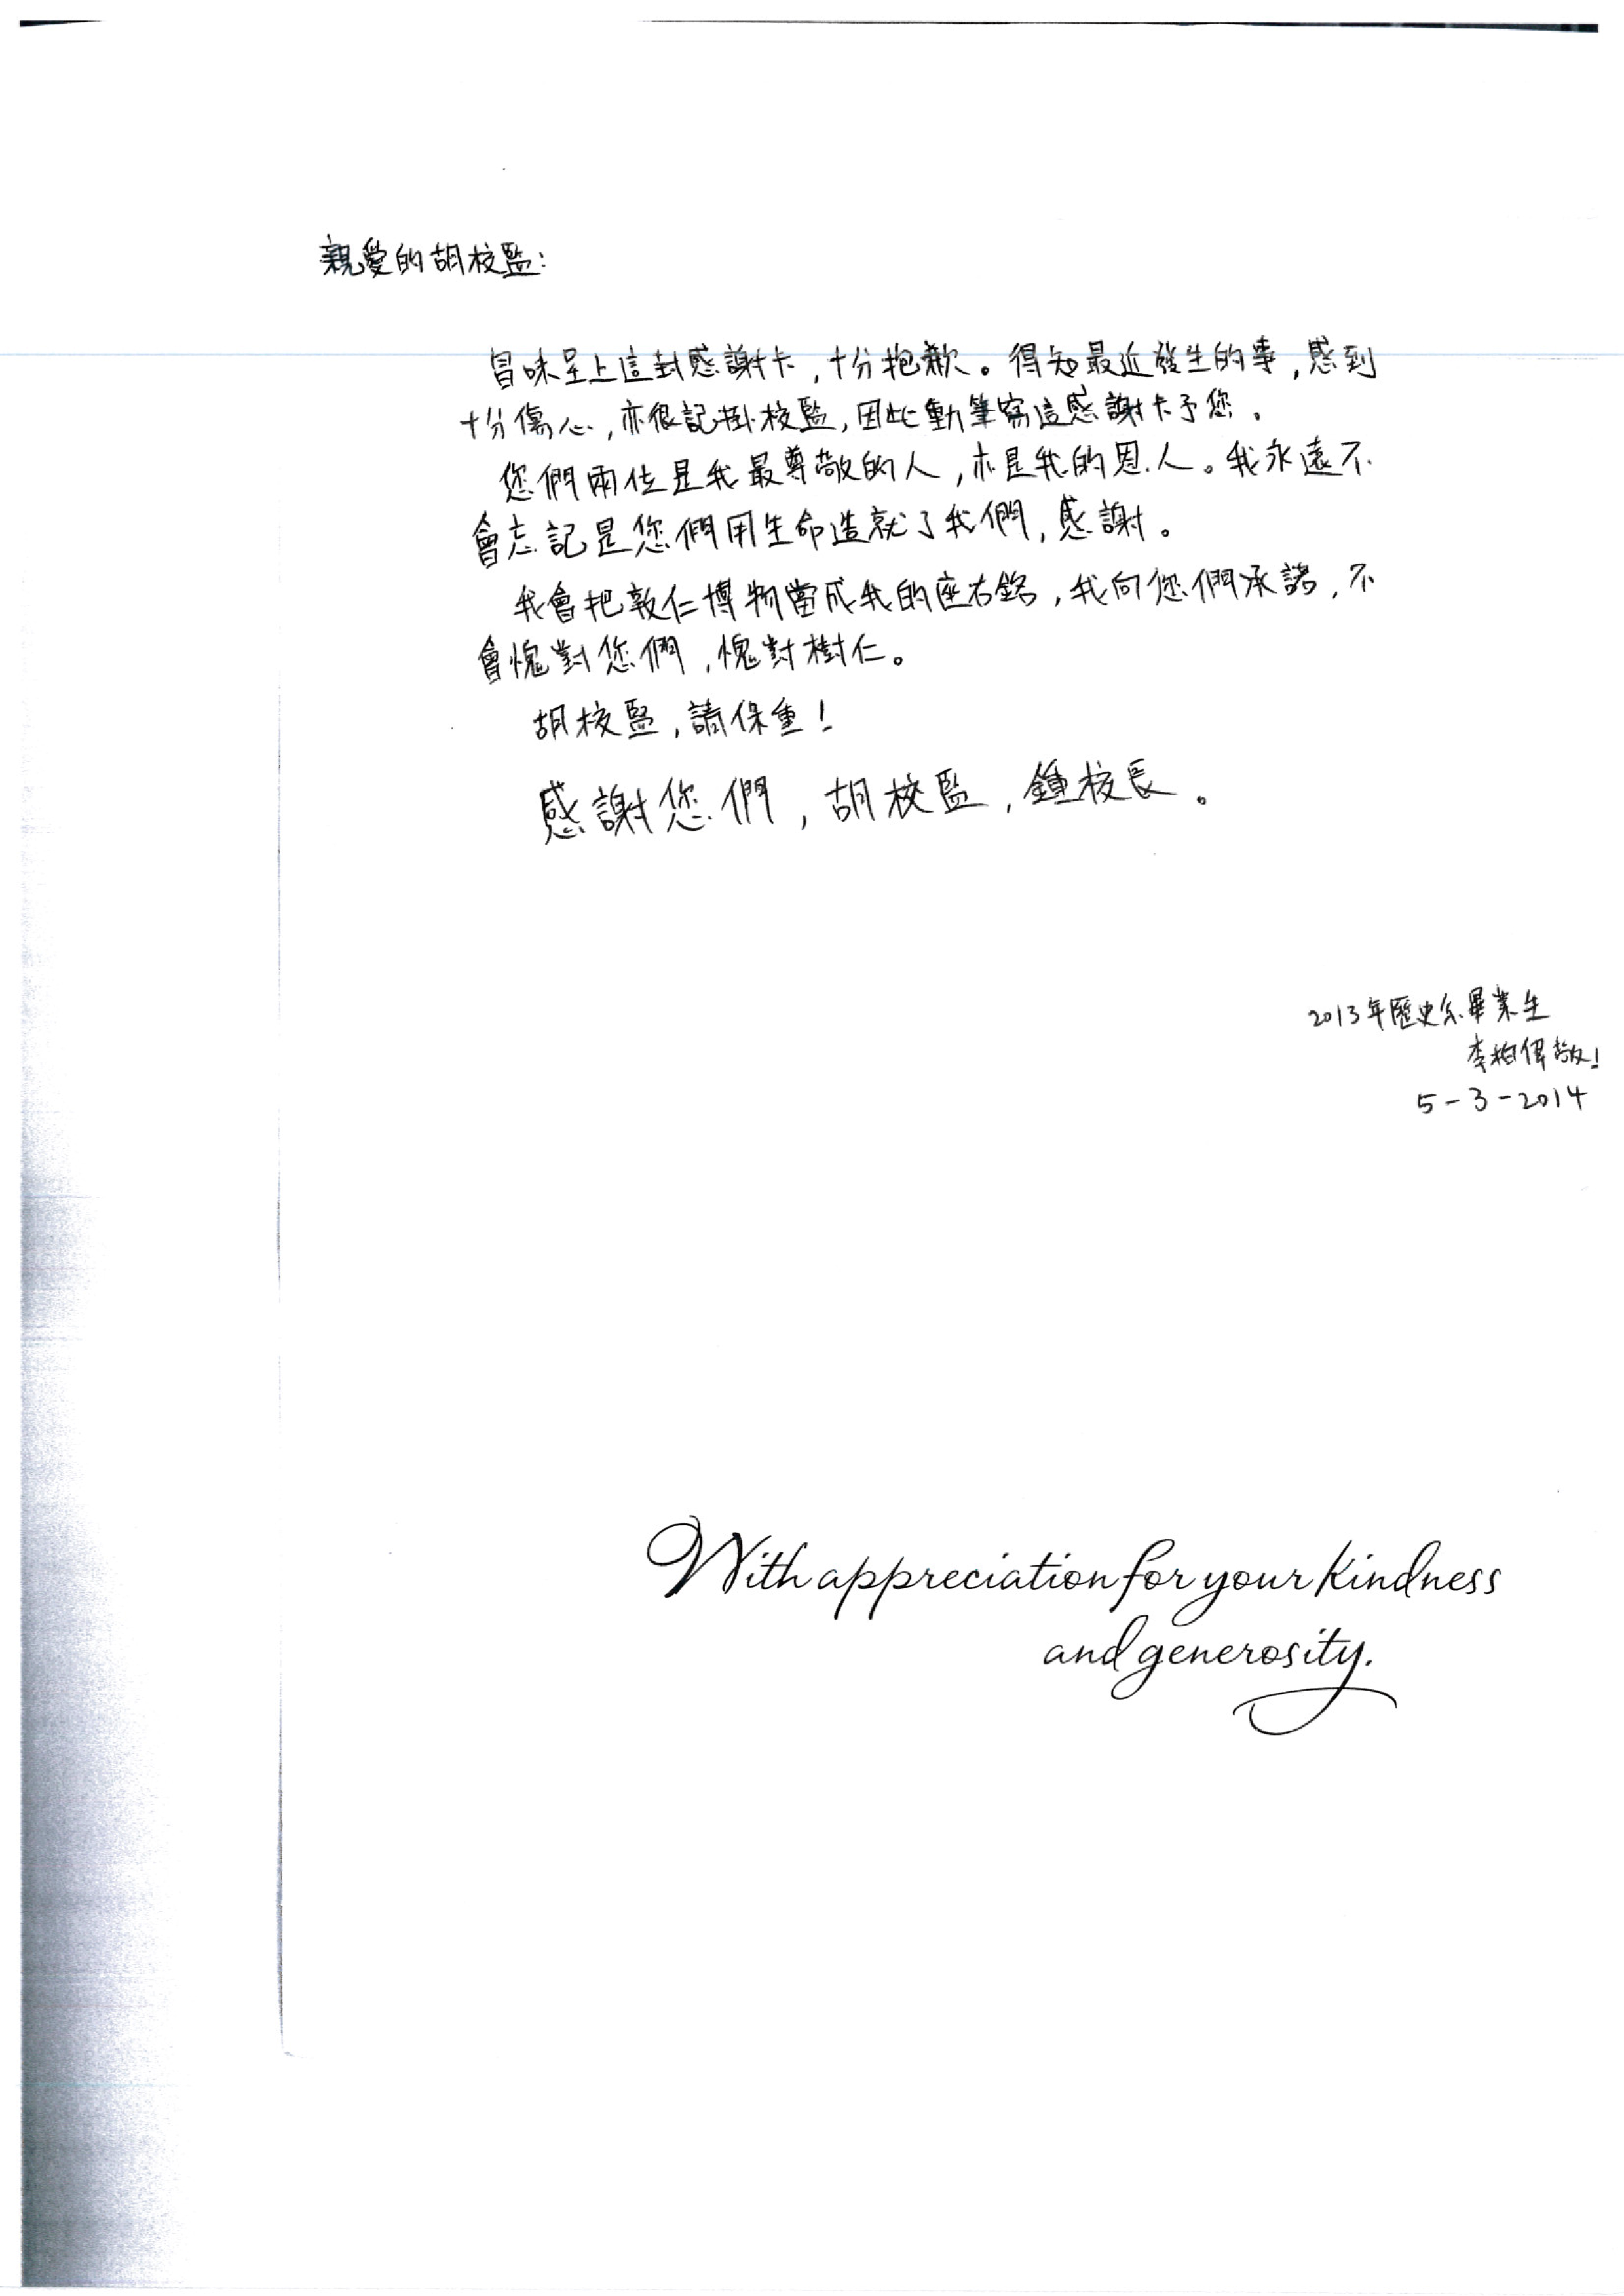 親愛的胡校監:
冒昧呈上這封感謝卡,十分抱歉。得知最近發生的事,感到
十分傷心,亦很記掛校監,因此動筆寫這感謝卡予您。
您們兩位是我最尊敬的人,亦是我的恩人。我永遠不
會忘記是您們用生命造就了我們,感謝。
我會把敦仁博物當成我的座右銘,我向您們承諾,不
會愧對您們,愧對樹仁。
胡校監,請保重!
感謝您們,胡校監,鍾校長。
2013年歷史系畢業生
李柏偉敬!
5-3-2014
With appreciation for your kindness
and generosity.